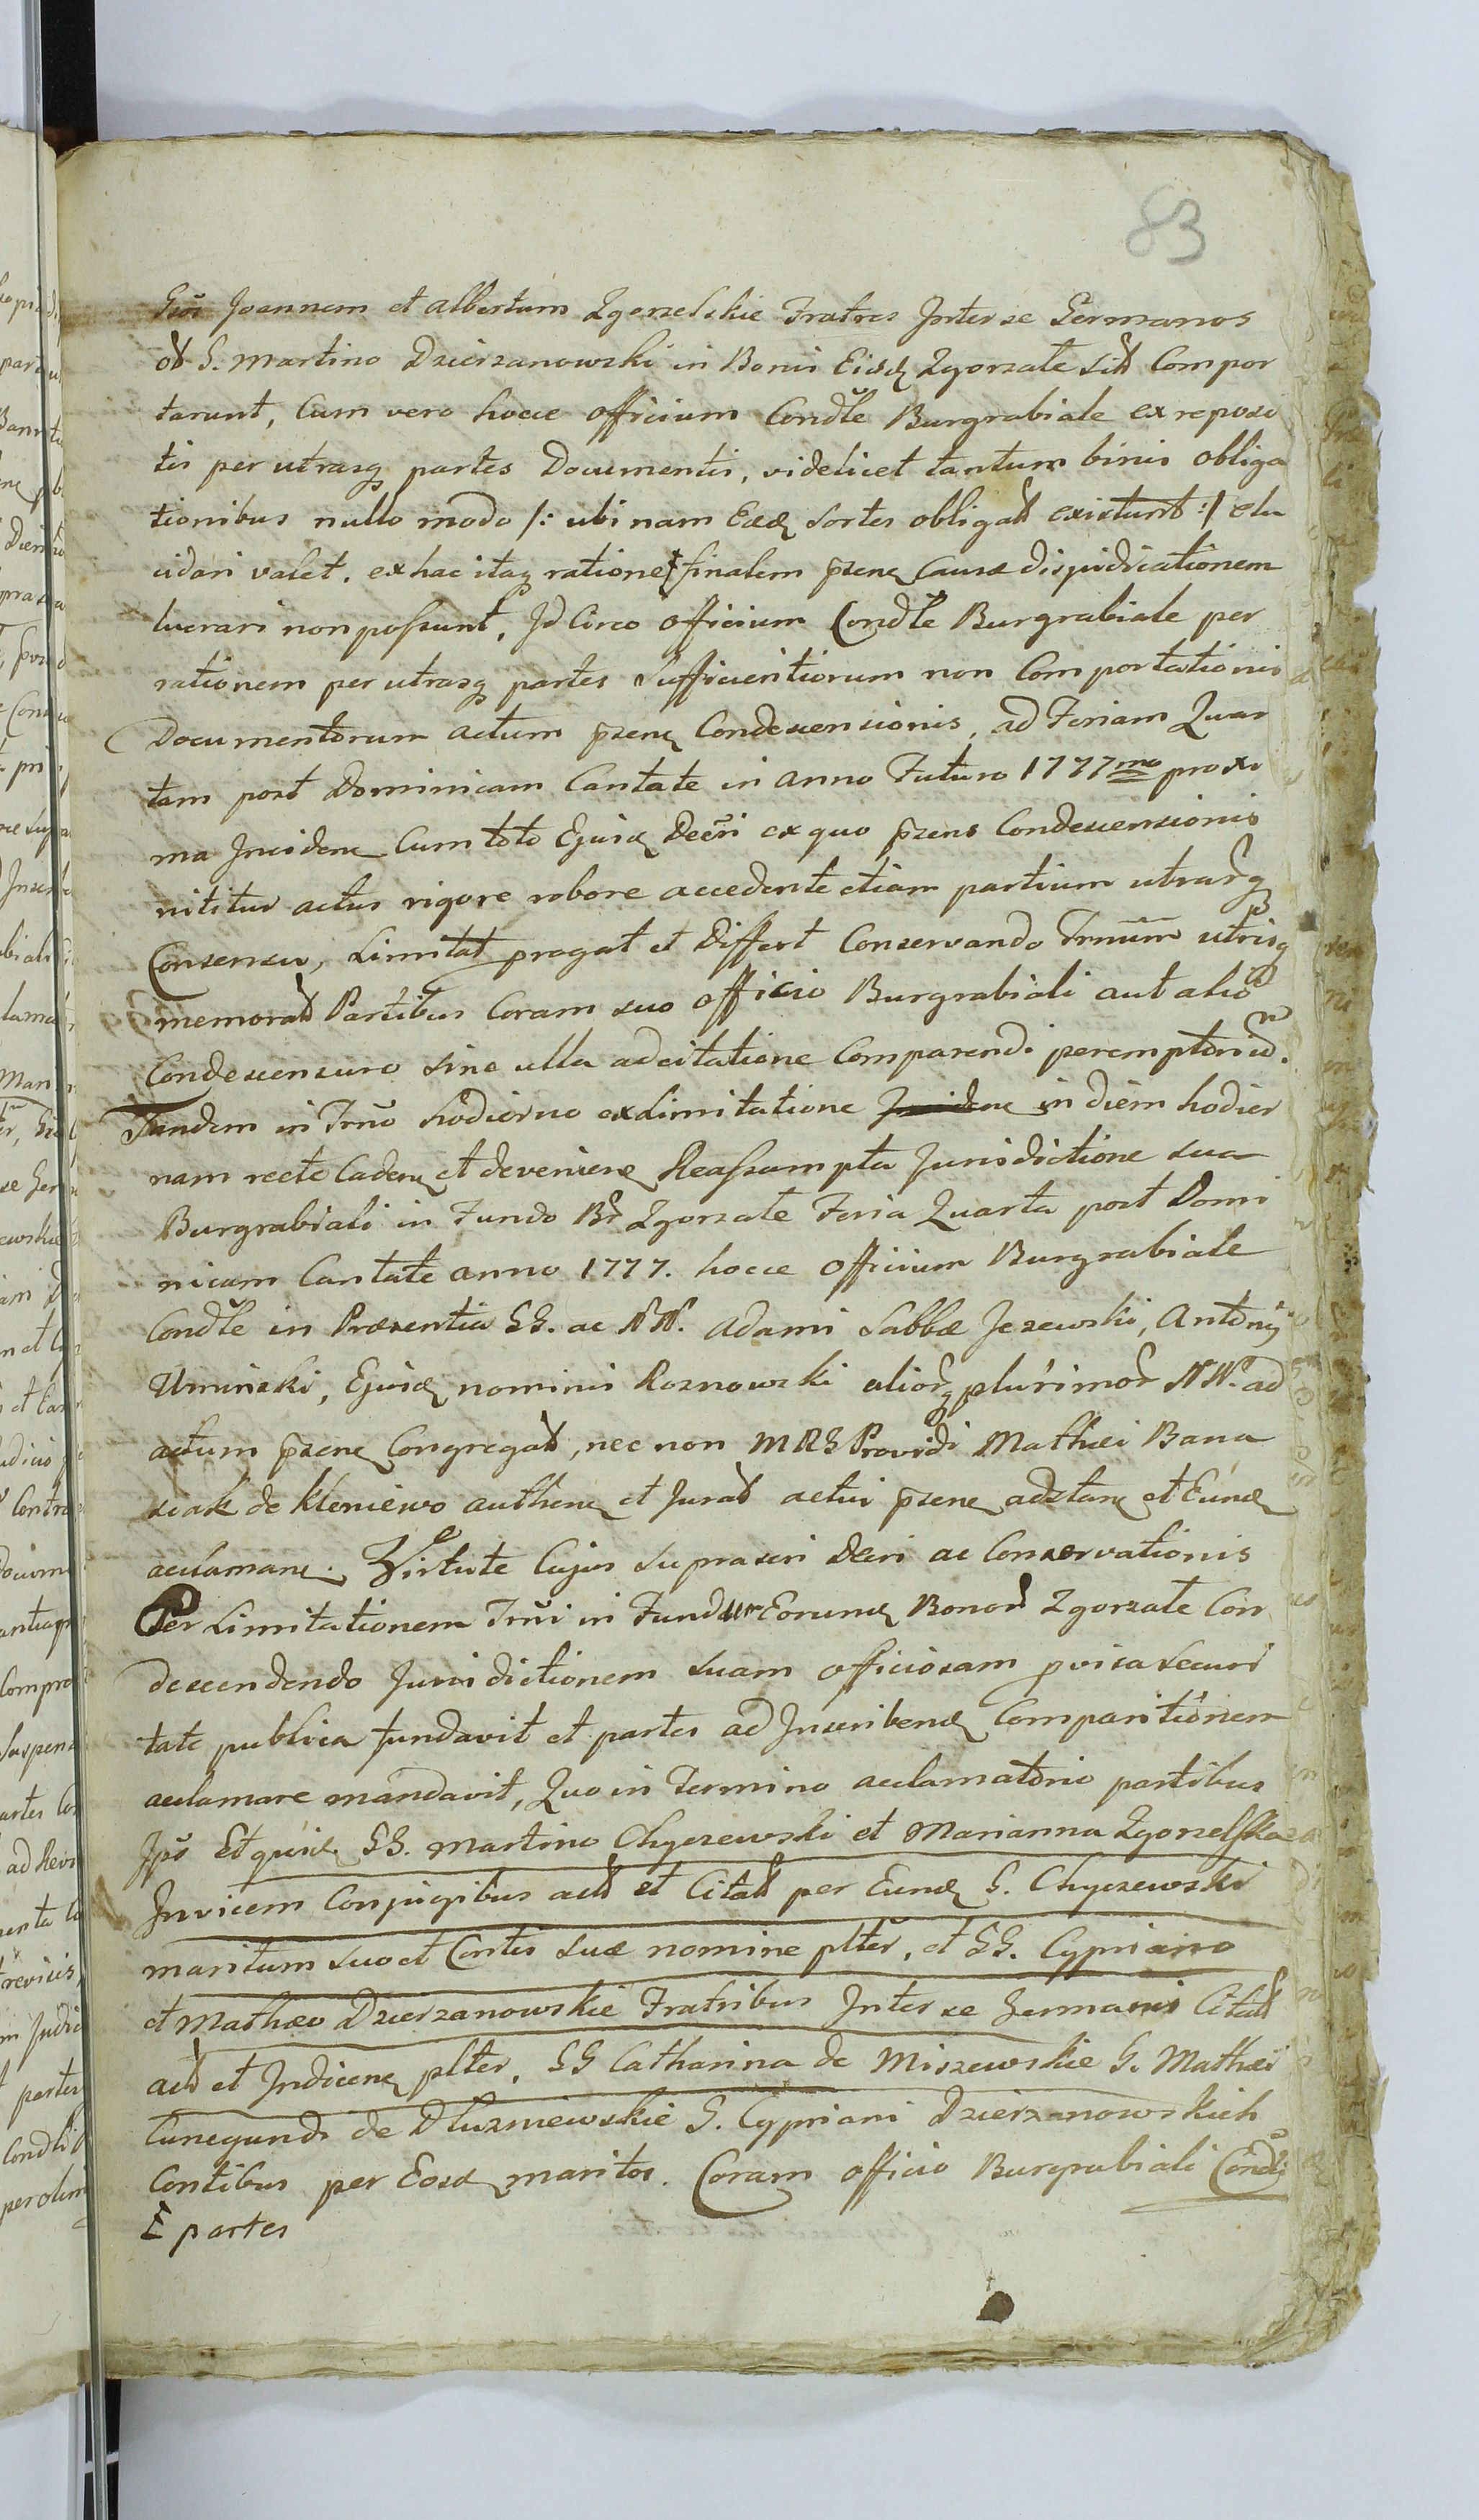 83
Gsos Joannem et Albertum Zgorzelskie Fratres Inter se Germanos
et G. Martino Dzierzanowski in Bonis Eisd Zgorzałe sit Compor
tarunt, Cum vero hocce Officium Condle Burgrabiale ex reposi
tis per utrasq partes Documentis, videlicet tantum binis obliga
tionibus nullo modo /: ubi nam Eaed sortes obligat existunt :/ elu
cidari valet. ex hac itaq ratione finalem psene Causæ disjudicationem
lucrari non possunt, Id Circo Officium Condle Burgrabiale per
rationem per utrasq partes Sufficientiorum non Comportationis
Documentorum actum psene Condescensionis, ad Feriam Quar
tam post Dominicam Cantate in anno Futuro 1777mo proxi
ma Inciden Cum toto Ejusd Decri ex quo psens Condescensionis
nititur actus rigore robore accedente etiam partium utrarq
Consensu, Limitat progat et Differt Conservando Trnum utrisq
memorat Partibus Coram suo Officio Burgrabiali aut alio
Condescensuro sine ulla adcitatione Comparendi peremptorium.
Tandem in Trno hodierno ex Limitatione in diem hodier
nam recte Caden et devenien Reassumpta Jurisdictione sua
Burgrabiali in Fundo Br Zgorzałe Feria Quarta post Domi
nicam Cantate anno 1777. hocce Officium Burgrabiale
Condle in Præsentia GG. ac NN. Adami Sabbæ Jezewski, Antonij
Uminski, Ejusd nominis Roznowski aliorq plurimor NN. ad
actum psene Congregat, nec non MRG Providi Mathæi Bana
siak de Kleniewo authen et Jurat actui psene adstan et Eund
acclaman. Virtute Cujus suprascri Decri ac Conservationis
Per Limitationem Trni in Fundum Eorund Bonor Zgorzałe Con
descendendo Jurisdictionem suam officiosam pvisa securi
tate publica fundavit et partes ad Inscribend Comparitionem
acclamare mandavit, Quo in Termino acclamatorio partibus
Ips Et quid GG. Martino Chyczewski et Marianna Zgorzelska
Invicem Conjugibus act et Citat per Eund G. Chyczewski
maritum suo et Contis suæ nomine plter, et GG. Cypriano
et Mathæo Dzierzanowskie Fratribus Inter se Germanis Citat
act et Indicen plter, GG Catharina de Miszewskie G. Mathæi
Cunegundi de Dłuzniewskie G. Cypriani Dzierzanowskich
Contibus per Eosd maritos. Coram Officio Burgrabiali Condli
E partes